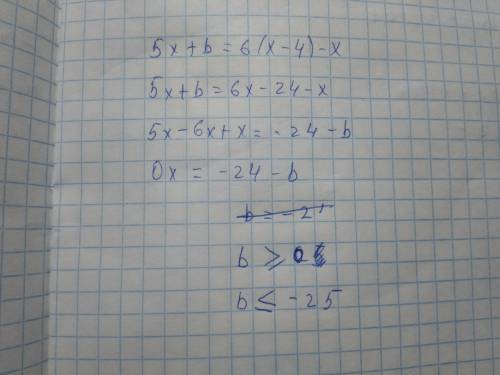 5x+b=6(x-4)-x
5x+b=6x-24-x
5x-6x+x=-24-b
0x=-24-b
b=-2
b ≥ 0
b ≤ -25